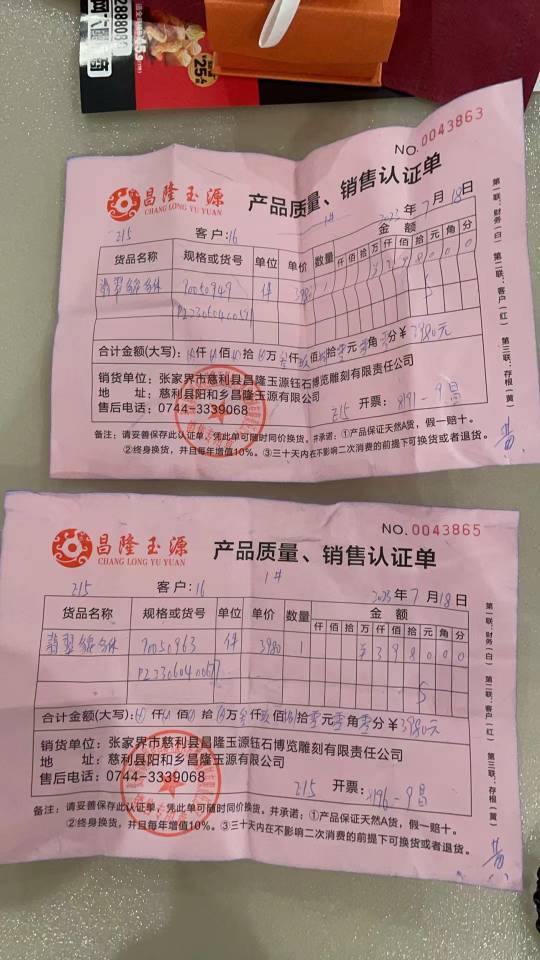 NO.0043863
昌隆玉源
CHANG LONG YU YUAN
产品质量、销售认证单
215 客户:16 1# 2023年7月18日
货品名称 规格或货号 单位 单价 数量 金额
仟 佰 拾 万 仟 佰 拾 元 角 分
翡翠 70050949 件 3980 1
合计金额(大写): 仟 佰 拾 万 仟 佰 拾 元 角 分 ¥3980元
销货单位:张家界市慈利县昌隆玉源钰石博览雕刻有限责任公司
地 址:慈利县阳和乡昌隆玉源有限公司
售后电话:0744-3339068
215 开票:
备注:请妥善保存此认证单,凭此单可随时同价换货。并承诺:①产品保证天然A货,假一赔十。
②终身换货,并且每年增值10%。③三十天内在不影响二次消费的前提下可换货或者退货。
第一联:财务(白) 第二联:客户(红) 第三联:存根(黄)
NO.0043865
昌隆玉源
CHANG LONG YU YUAN
产品质量、销售认证单
215 客户:16 1# 2023年7月18日
货品名称 规格或货号 单位 单价 数量 金额
仟 佰 拾 万 仟 佰 拾 元 角 分
翡翠 70050963 件 3980 1 ¥ 3 9 8 0 0 0
合计金额(大写): 仟 佰 拾 万 仟 佰 拾 元 角 分 ¥3980元
销货单位:张家界市慈利县昌隆玉源钰石博览雕刻有限责任公司
地 址:慈利县阳和乡昌隆玉源有限公司
售后电话:0744-3339068
215 开票:
备注:请妥善保存此认证单,凭此单可随时同价换货。并承诺:①产品保证天然A货,假一赔十。
②终身换货,并且每年增值10%。③三十天内在不影响二次消费的前提下可换货或者退货。
第一联:财务(白) 第二联:客户(红) 第三联:存根(黄)